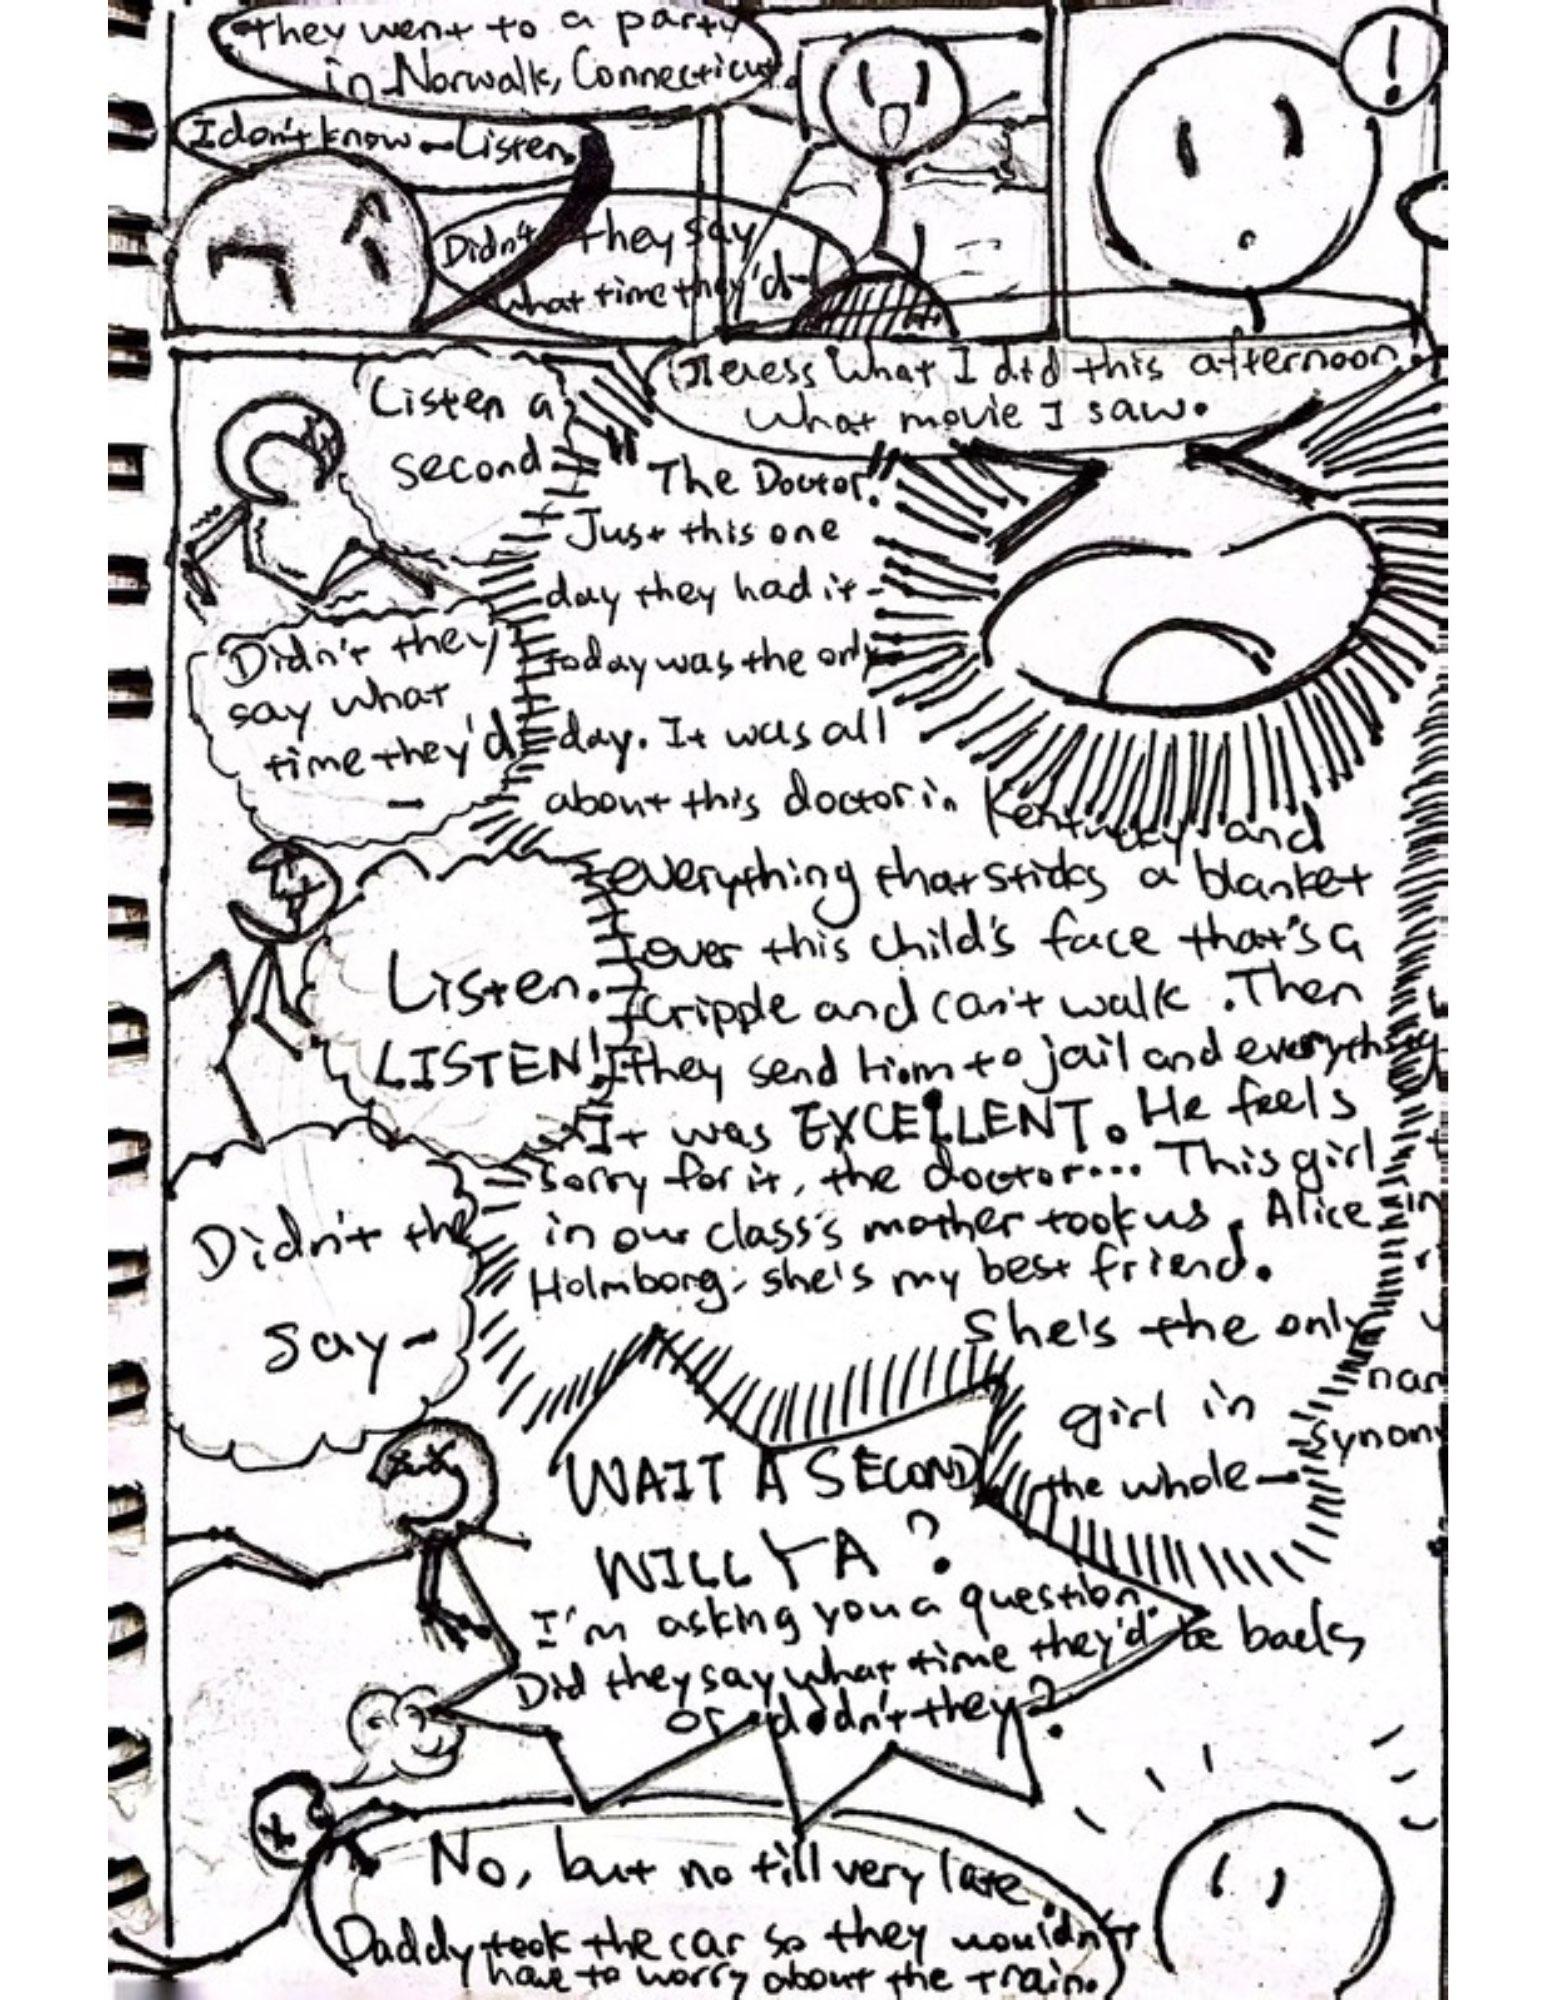 They went to a party
in Norwalk, Connecticut.
I don't know — Listen.
Didn't they say
what time they'd—
!
Guess What I did this afternoon,
what movie I saw.
Listen a
second
"The Doctor."
Just this one
day they had it-
today was the only
day. It was all
about this doctor in Kentucky and
everything that sticks a blanket
over this child's face that's a
cripple and can't walk. Then
they send him to jail and everything
It was EXCELLENT. He feels
sorry for it, the doctor... This girl
in our class's mother took us, Alice
Holmborg, she's my best friend.
She's the only
girl in
the whole—
Didn't they
say what
time they'd
—
Listen.
LISTEN!
Didn't the
say—
WAIT A SECOND
WILL YA?
I'm asking you a question.
Did they say what time they'd be back,
or didn't they?
nam
synony
No, but no till very late
Daddy took the car so they wouldn't
have to worry about the train.